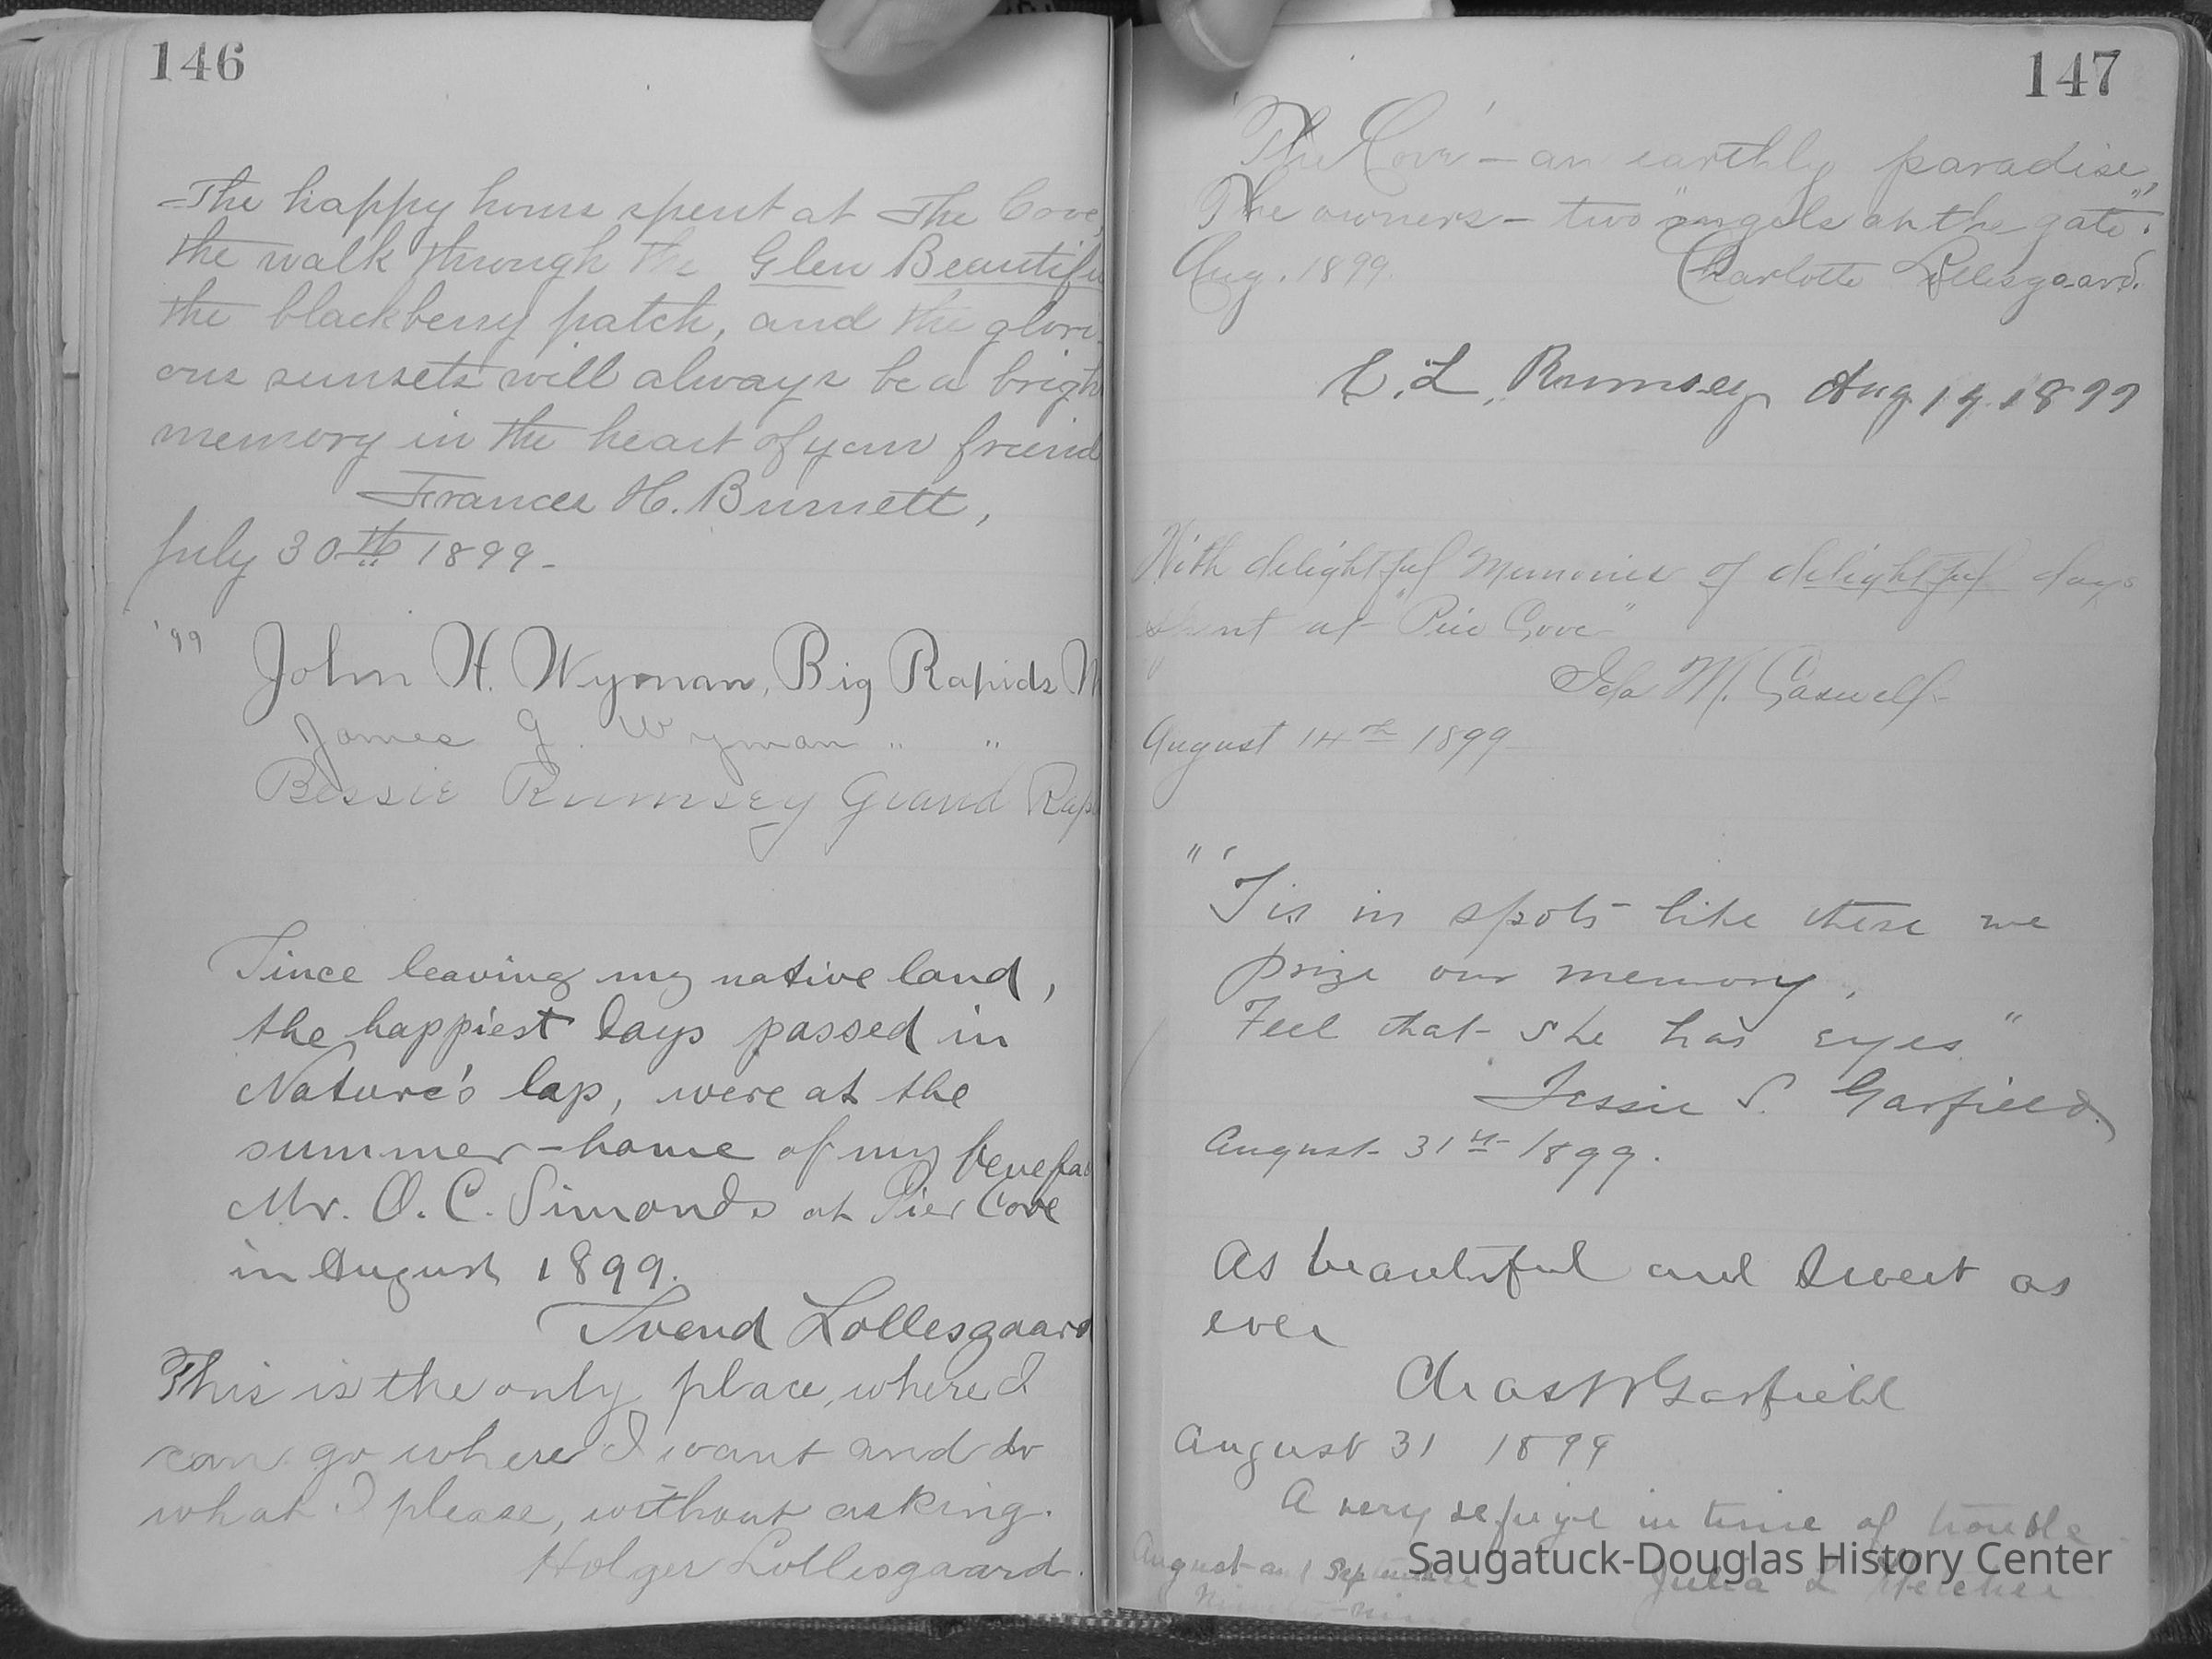 146
The happy hours spent at The Cove,
the walk through the Glen Beautifu
the blackberry patch, and the glori-
ous sunsets will always be a brigh
memory in the heart of your friend
Frances H. Burnett,
July 30th 1899-
'99 John H. Wyman, Big Rapids M
James G. Wyman " "
Bessie Rumsey Grand Rap
Since leaving my native land,
the happiest days passed in
Nature's lap, were at the
summer-home of my benefac
Mr. O. C. Simonds at Pier Cove
in August 1899.
Svend Lollesgaard
This is the only place, where I
can go where I want and do
what I please, without asking.
Holger Lollesgaard.
147
'The Cove' - an earthly paradise,
The owners - two "angels at the gate".
Aug. 1899. Charlotte Lollesgaard.
L. Rumsey Aug 14 1899
With delightful Memories of delightful days
spent at "Pier Cove"
Ida M.
August 14th 1899
"'Tis in spots like these we
prize our memory,
Feel that she has eyes"
Jessie S. Garfield.
August 31st 1899.
As beautiful and sweet as
ever
Chas W Garfield
August 31 1899
A very refuge in time of trouble
August and September
Julia L
Ninety-nine
Saugatuck-Douglas History Center